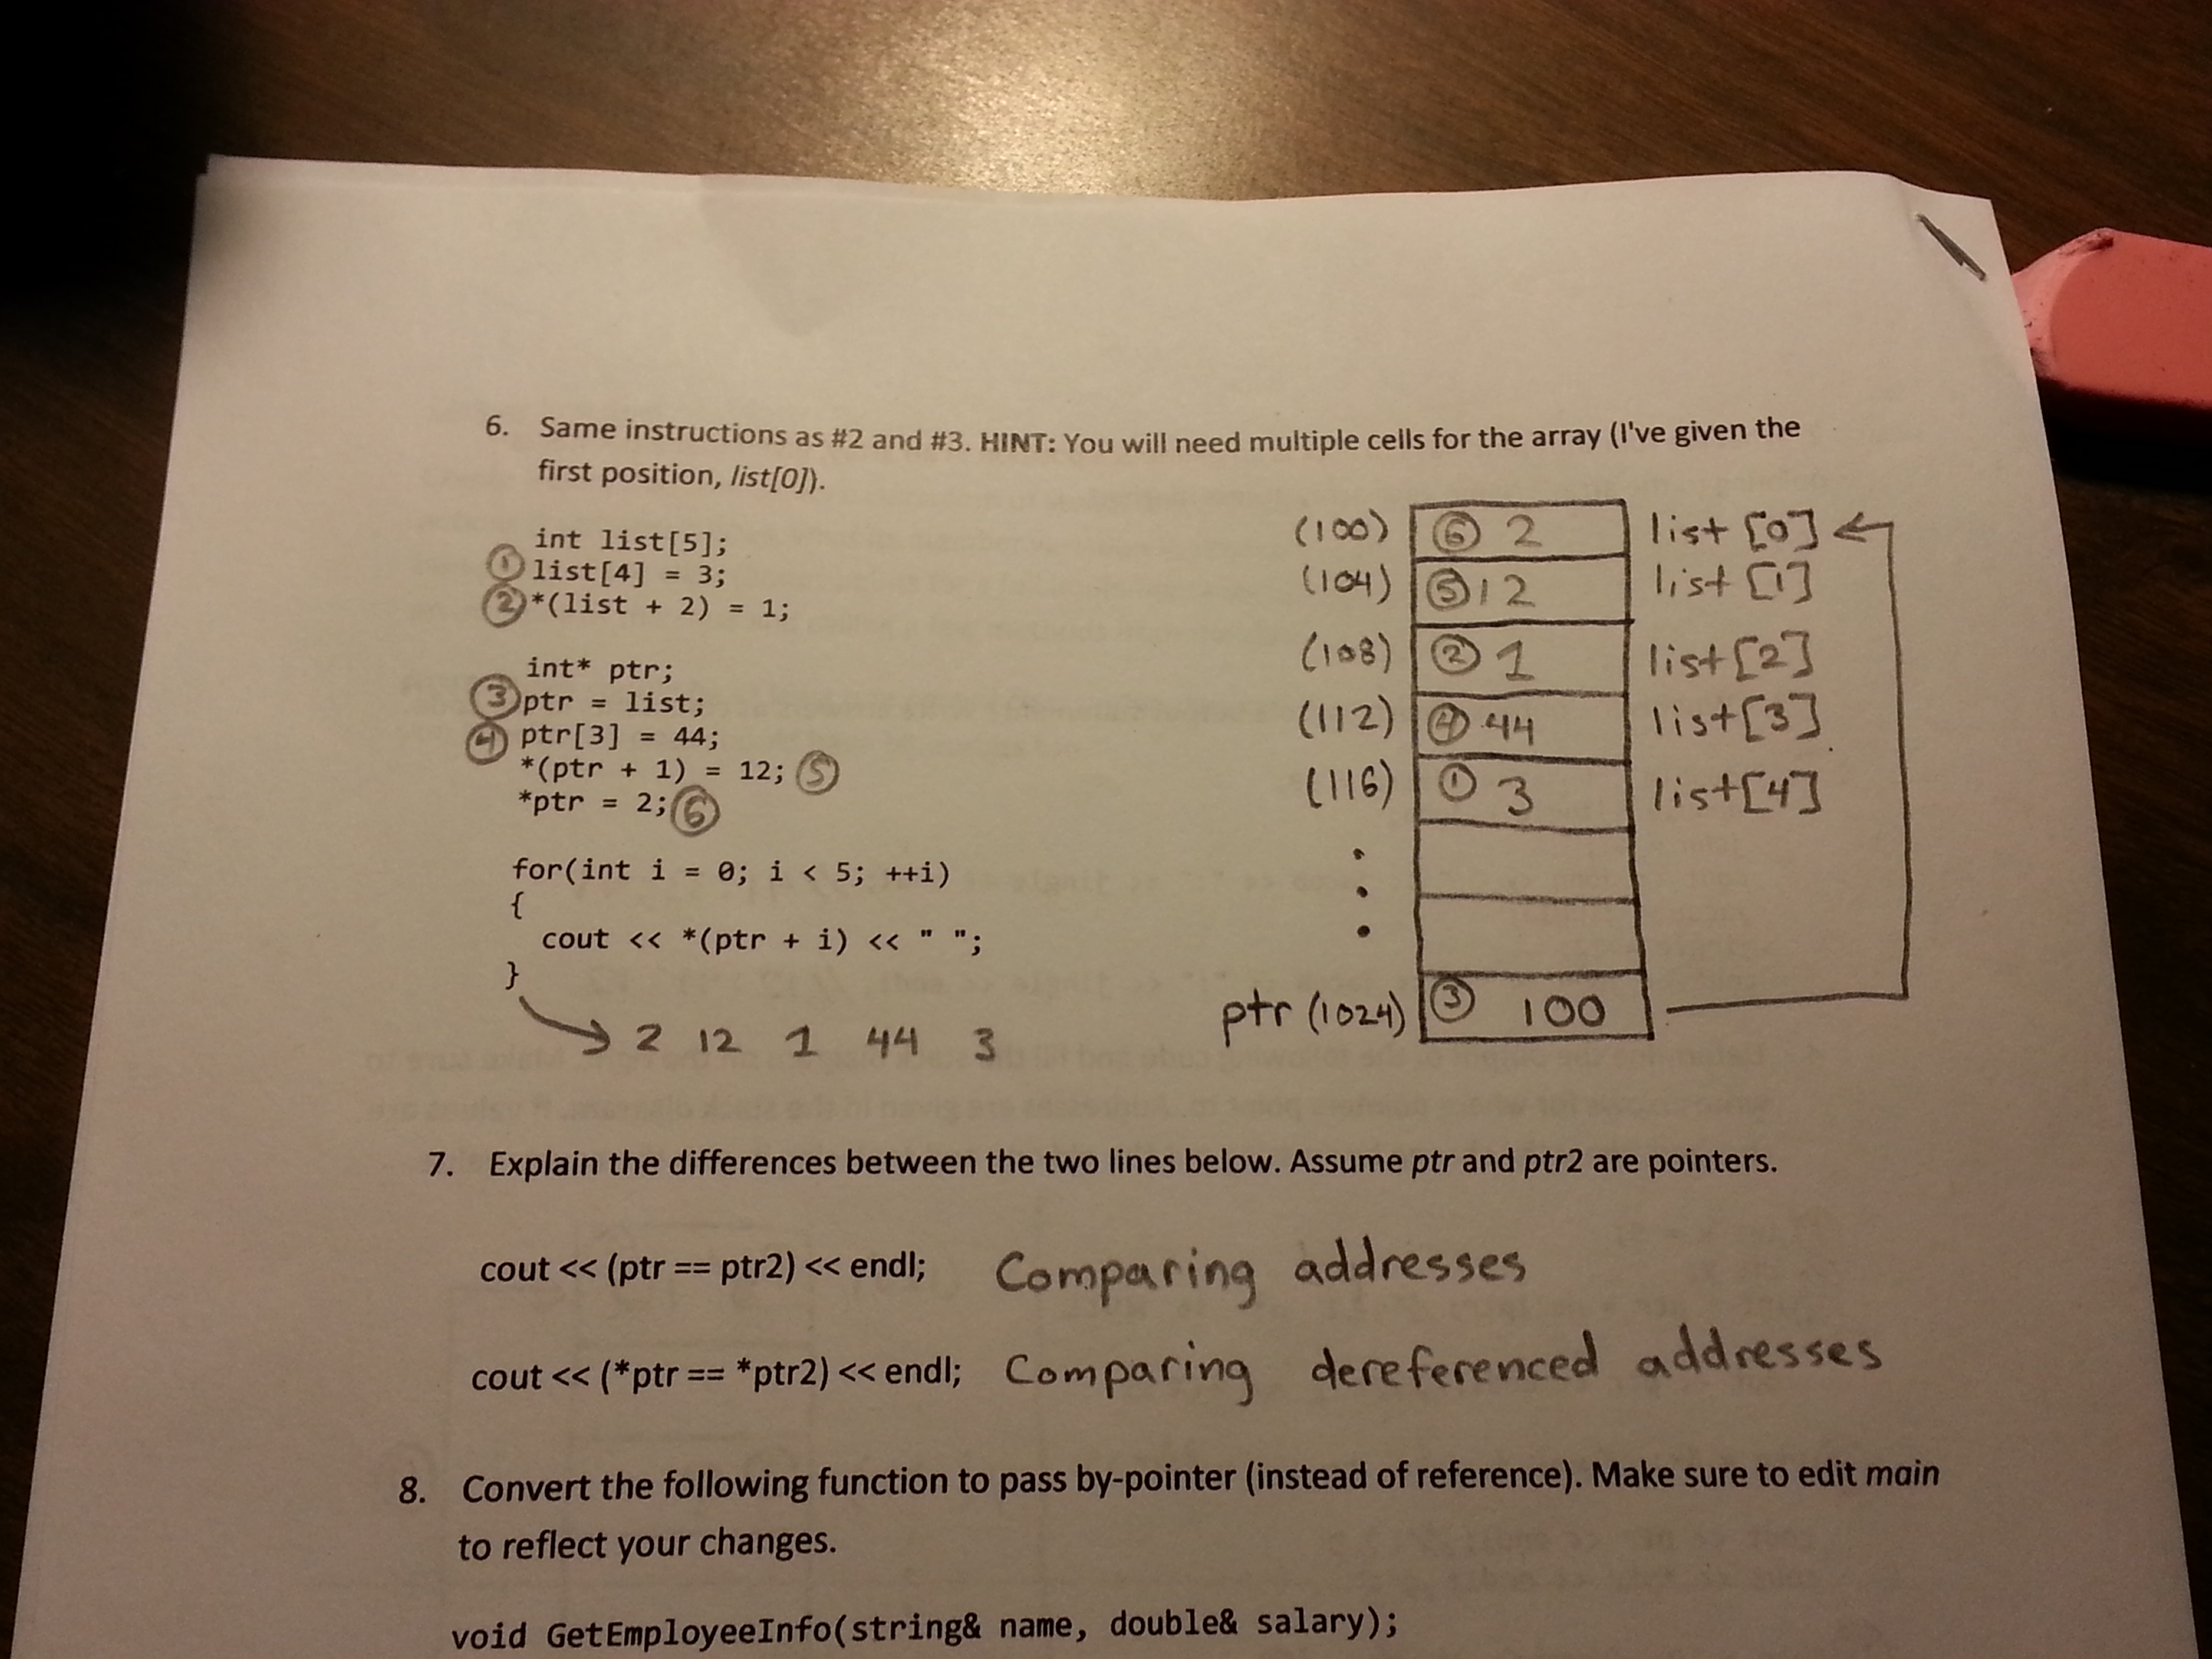 6. Same instructions as #2 and #3. HINT: You will need multiple cells for the array (I've given the
first position, list[0]).
int list[5];
① list[4] = 3;
② *(list + 2) = 1;
int* ptr;
③ ptr = list;
④ ptr[3] = 44;
*(ptr + 1) = 12; ⑤
*ptr = 2; ⑥
for(int i = 0; i < 5; ++i)
{
cout << *(ptr + i) << " ";
}
2 12 1 44 3
(100) ⑥ 2 list [0]
(104) ⑤ 12 list [1]
(108) ② 1 list [2]
(112) ④ 44 list [3]
(116) ① 3 list [4]
ptr (1024) ③ 100
7. Explain the differences between the two lines below. Assume ptr and ptr2 are pointers.
cout << (ptr == ptr2) << endl; Comparing addresses
cout << (*ptr == *ptr2) << endl; Comparing dereferenced addresses
8. Convert the following function to pass by-pointer (instead of reference). Make sure to edit main
to reflect your changes.
void GetEmployeeInfo(string& name, double& salary);